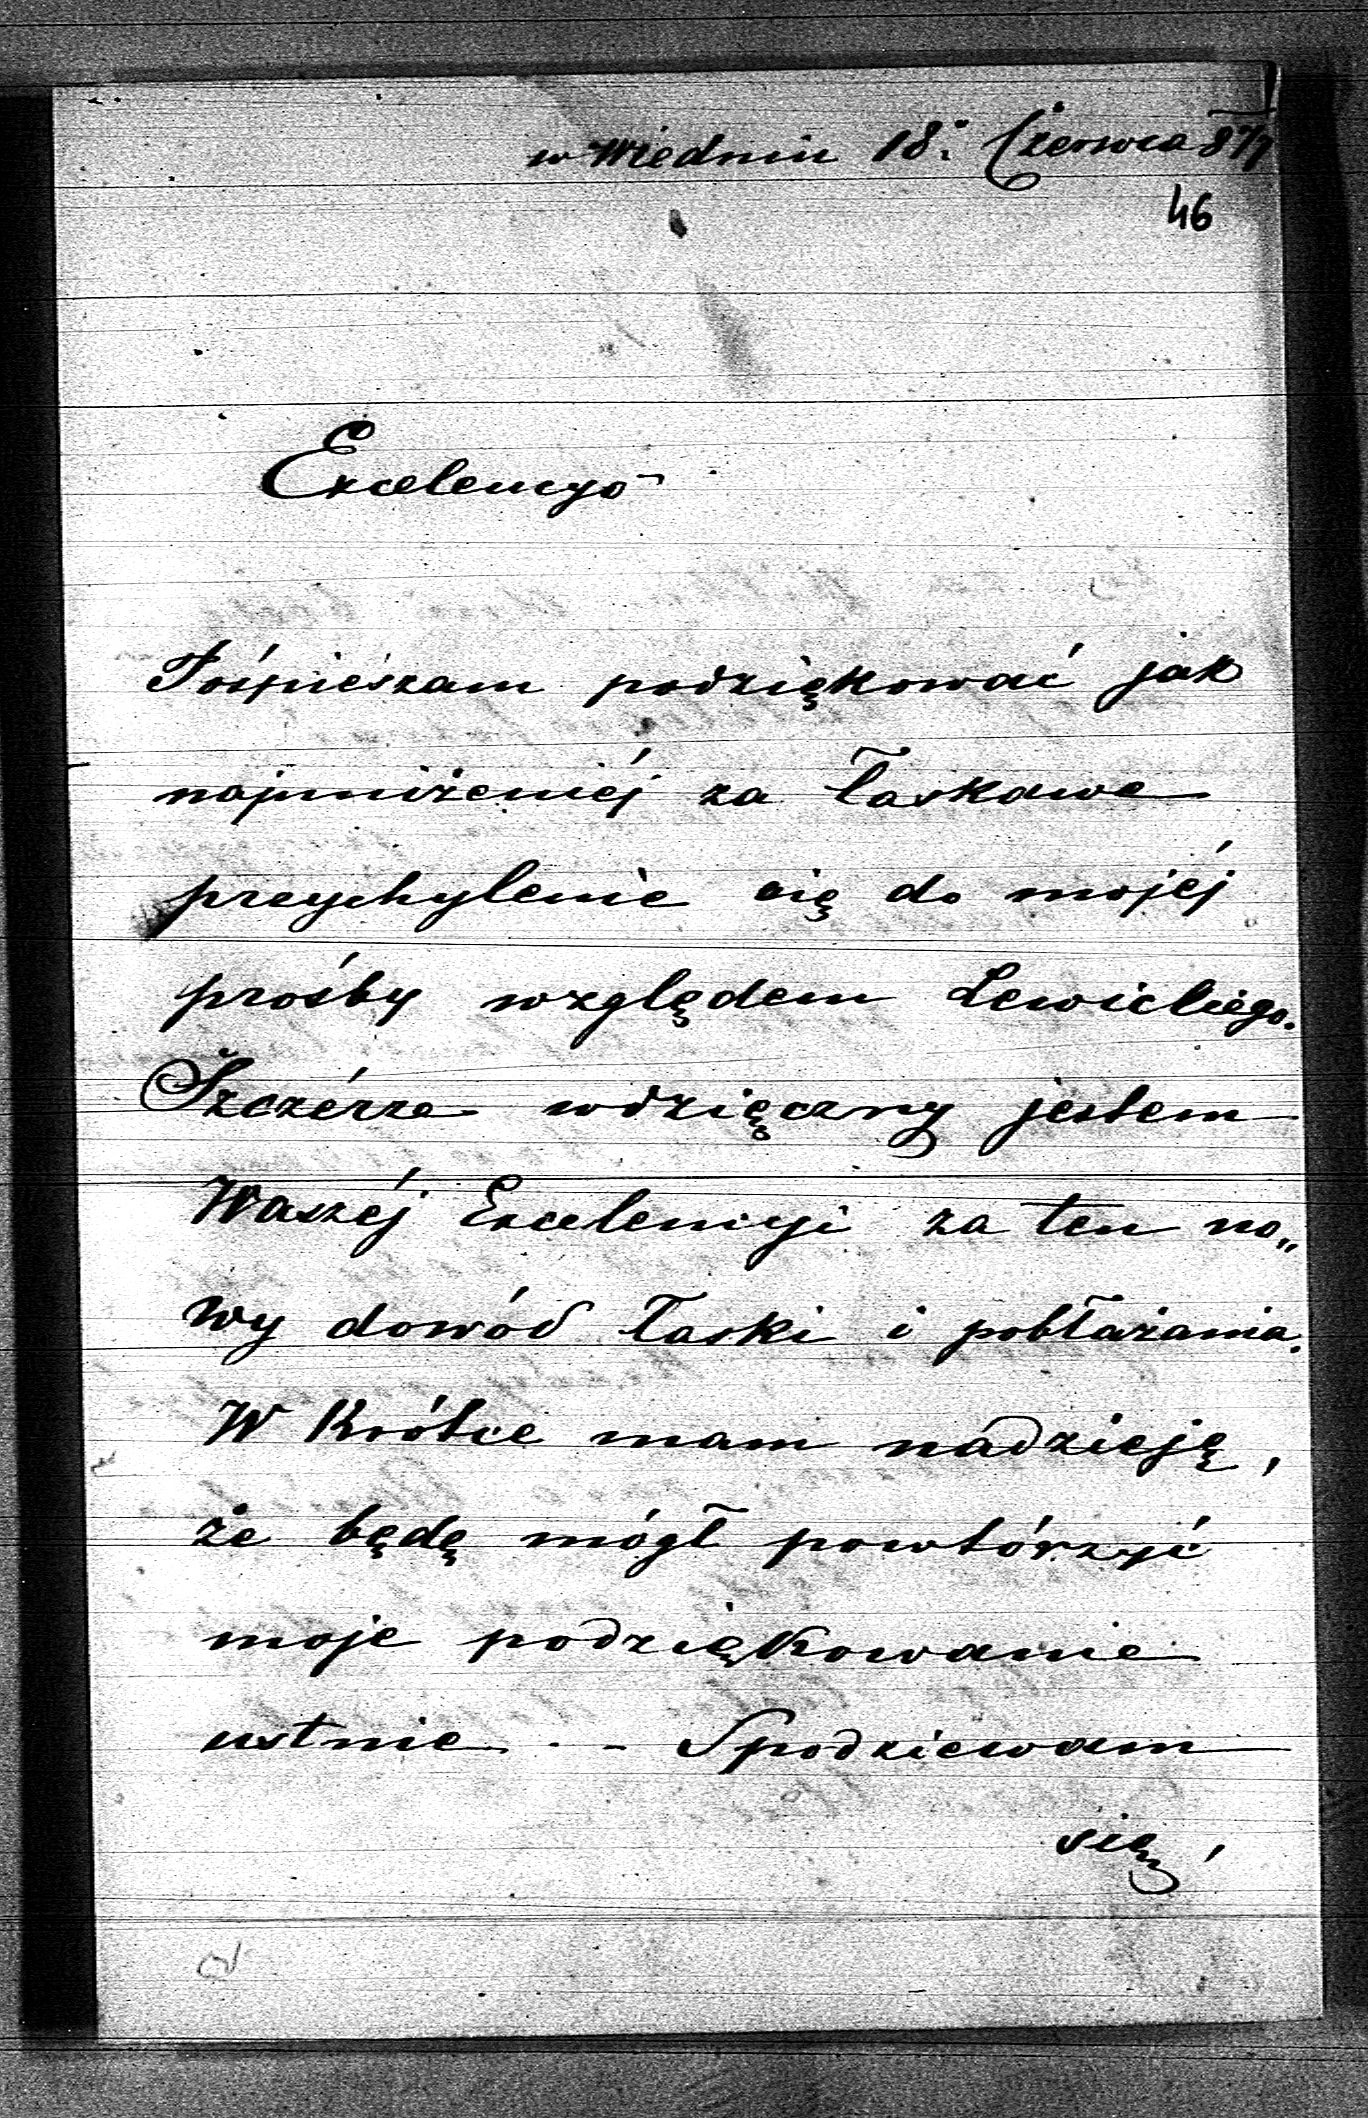 w Wiedniu 18. Czerwca 877
46
Excelencyo
Pośpieszam podziękować jak
najuniżeniéj za łaskawe
przychylenie się do mojéj
prośby względem Lewickiego.
Szczérze wdzięczny jestem
Waszéj Excelencyi za ten no„
wy dowód łaski i pobłażania.
W Krótce mam nadzieję,
że będę mógł powtórzyć
moje podziękowanie
ustnie. – Spodziewam
się,